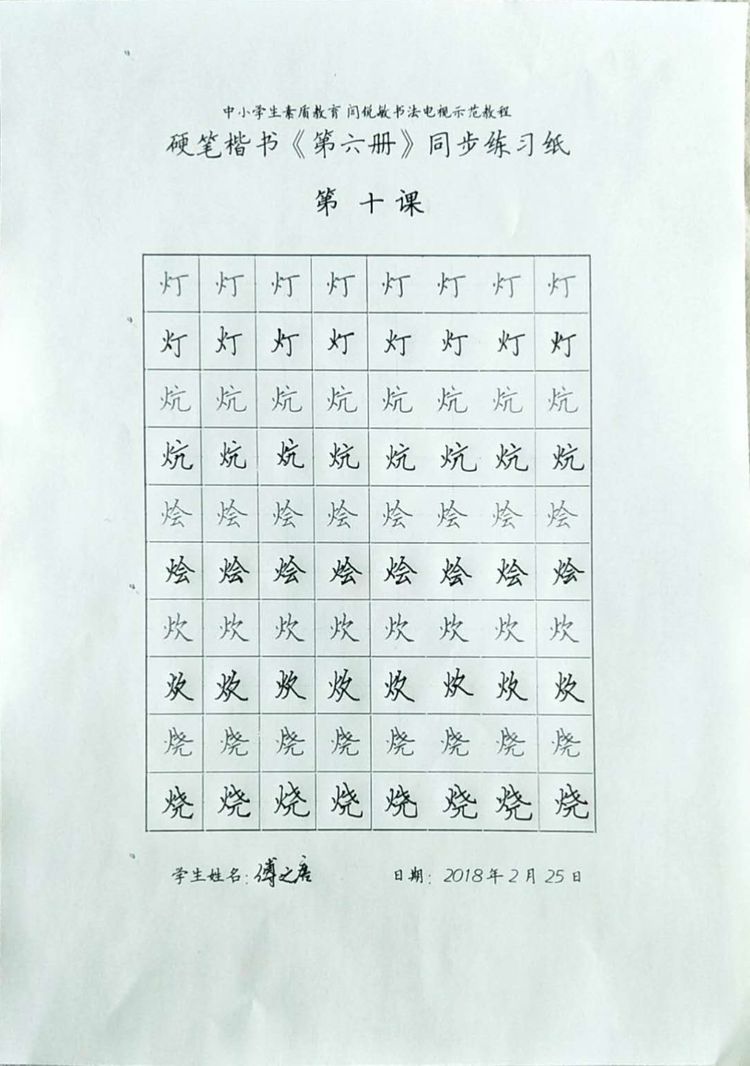 中小学生素质教育 闫锐敏书法电视示范教程
硬笔楷书《第六册》同步练习纸
第十课
灯灯灯灯灯灯灯灯
灯灯灯灯灯灯灯灯
炕炕炕炕炕炕炕炕
炕炕炕炕炕炕炕炕
烩烩烩烩烩烩烩烩
烩烩烩烩烩烩烩烩
炊炊炊炊炊炊炊炊
炊炊炊炊炊炊炊炊
烧烧烧烧烧烧烧烧
烧烧烧烧烧烧烧烧
学生姓名：傅之唐 日期：2018年2月25日